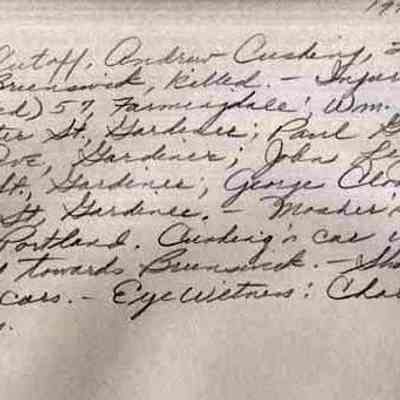 19
Cutoff, Andrew Cushing, 2
Brunswick, killed. – Injur
ed) 57, Farmingdale; Wm.
ter St, Gardiner; Paul
Ave, Gardiner; John
St, Gardiner; George Clo
St, Gardiner. – Mosher's
Portland. Cushing's car
towards Brunswick. – Sh
cars. – Eye Witness: Cha
s.